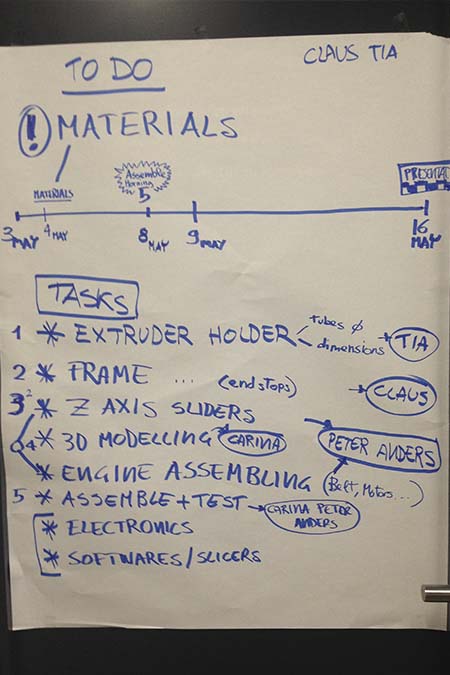 TO DO
CLAUS TIA
! MATERIALS
MATERIALS
Assemble
Morning
5
PRESENTAT
3 MAY
4 MAY
8 MAY
9 MAY
16 MAY
TASKS
1 * EXTRUDER HOLDER tubes Ø
dimensions → TIA
2 * FRAME ... (endstops) → CLAUS
3 2 * Z AXIS SLIDERS
4 * 3D MODELLING → CARINA PETER ANDERS
* ENGINE ASSEMBLING (Belt, Motors...)
5 * ASSEMBLE + TEST → CARINA PETER
ANDERS
* ELECTRONICS
* SOFTWARES/SLICERS